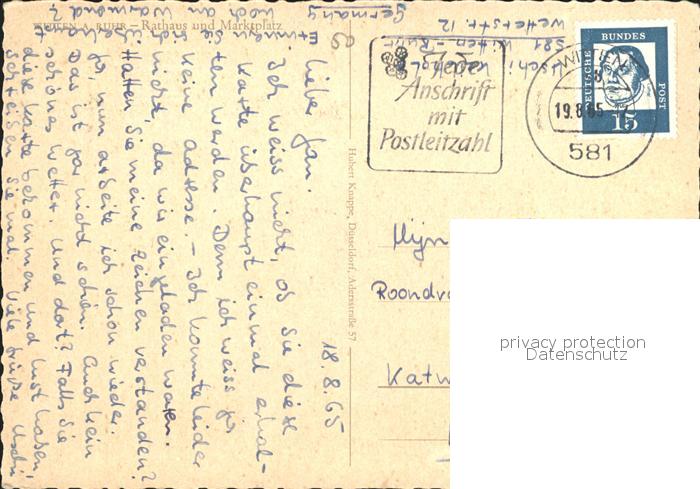 WITTEN A. RUHR – Rathaus und Marktplatz
18.8.65
Lieber Jan.
Ich weiss nicht, ob Sie diese
Karte überhaupt einmal erhal-
ten werden. Denn ich weiss ja
keine Adresse. – Ich konnte leider
nicht, da wir eingeladen waren.
Hatten Sie meine Zeichen verstanden?
Ja, nun arbeite ich schon wieder.
Das ist gar nicht schön. Auch kein
schönes Wetter. Und dort? Falls Sie
diese Karte bekommen und Lust haben,
schreiben Sie mal. Viele Grüße Uschi
Hubert Knappe, Düsseldorf, Adersstraße 57
581 Witten-Ruhr
Wetterstr. 12
Germany
In jeder
Anschrift
mit
Postleitzahl
WITTEN
19.8.65
581
DEUTSCHE
BUNDES
POST
15
Mijn
Katw
privacy protection
Datenschutz